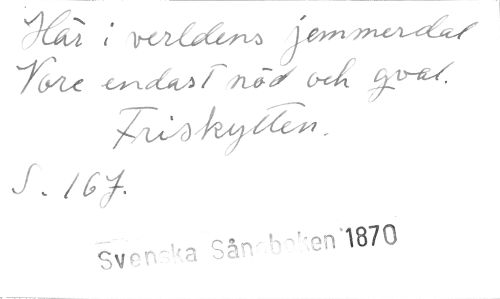 Här i verldens jemmerdal
Vore endast nöd och qval.
Friskytten.
S. 167.
Svenska Sångboken 1870